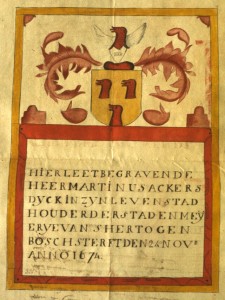 HIERLEETBEGRAVENDE
HEERMARTINUSACKERS
DYCKINZYNLEVENSTAD
HOUDERDERSTADENMEY
ERYEVANSHERTOGEN
BOSCHSTERFTDEN24NOVR
ANNO1674.